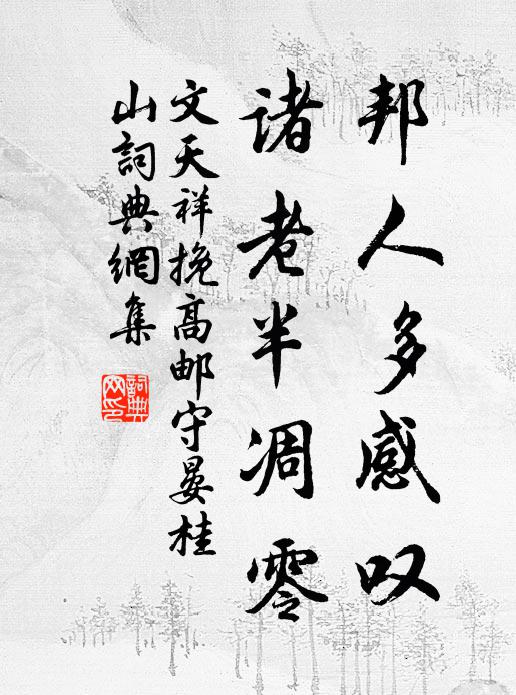 邦人多感叹
诸老半凋零
文天祥挽高邮守晏桂
山詞典網集
詞典
网印